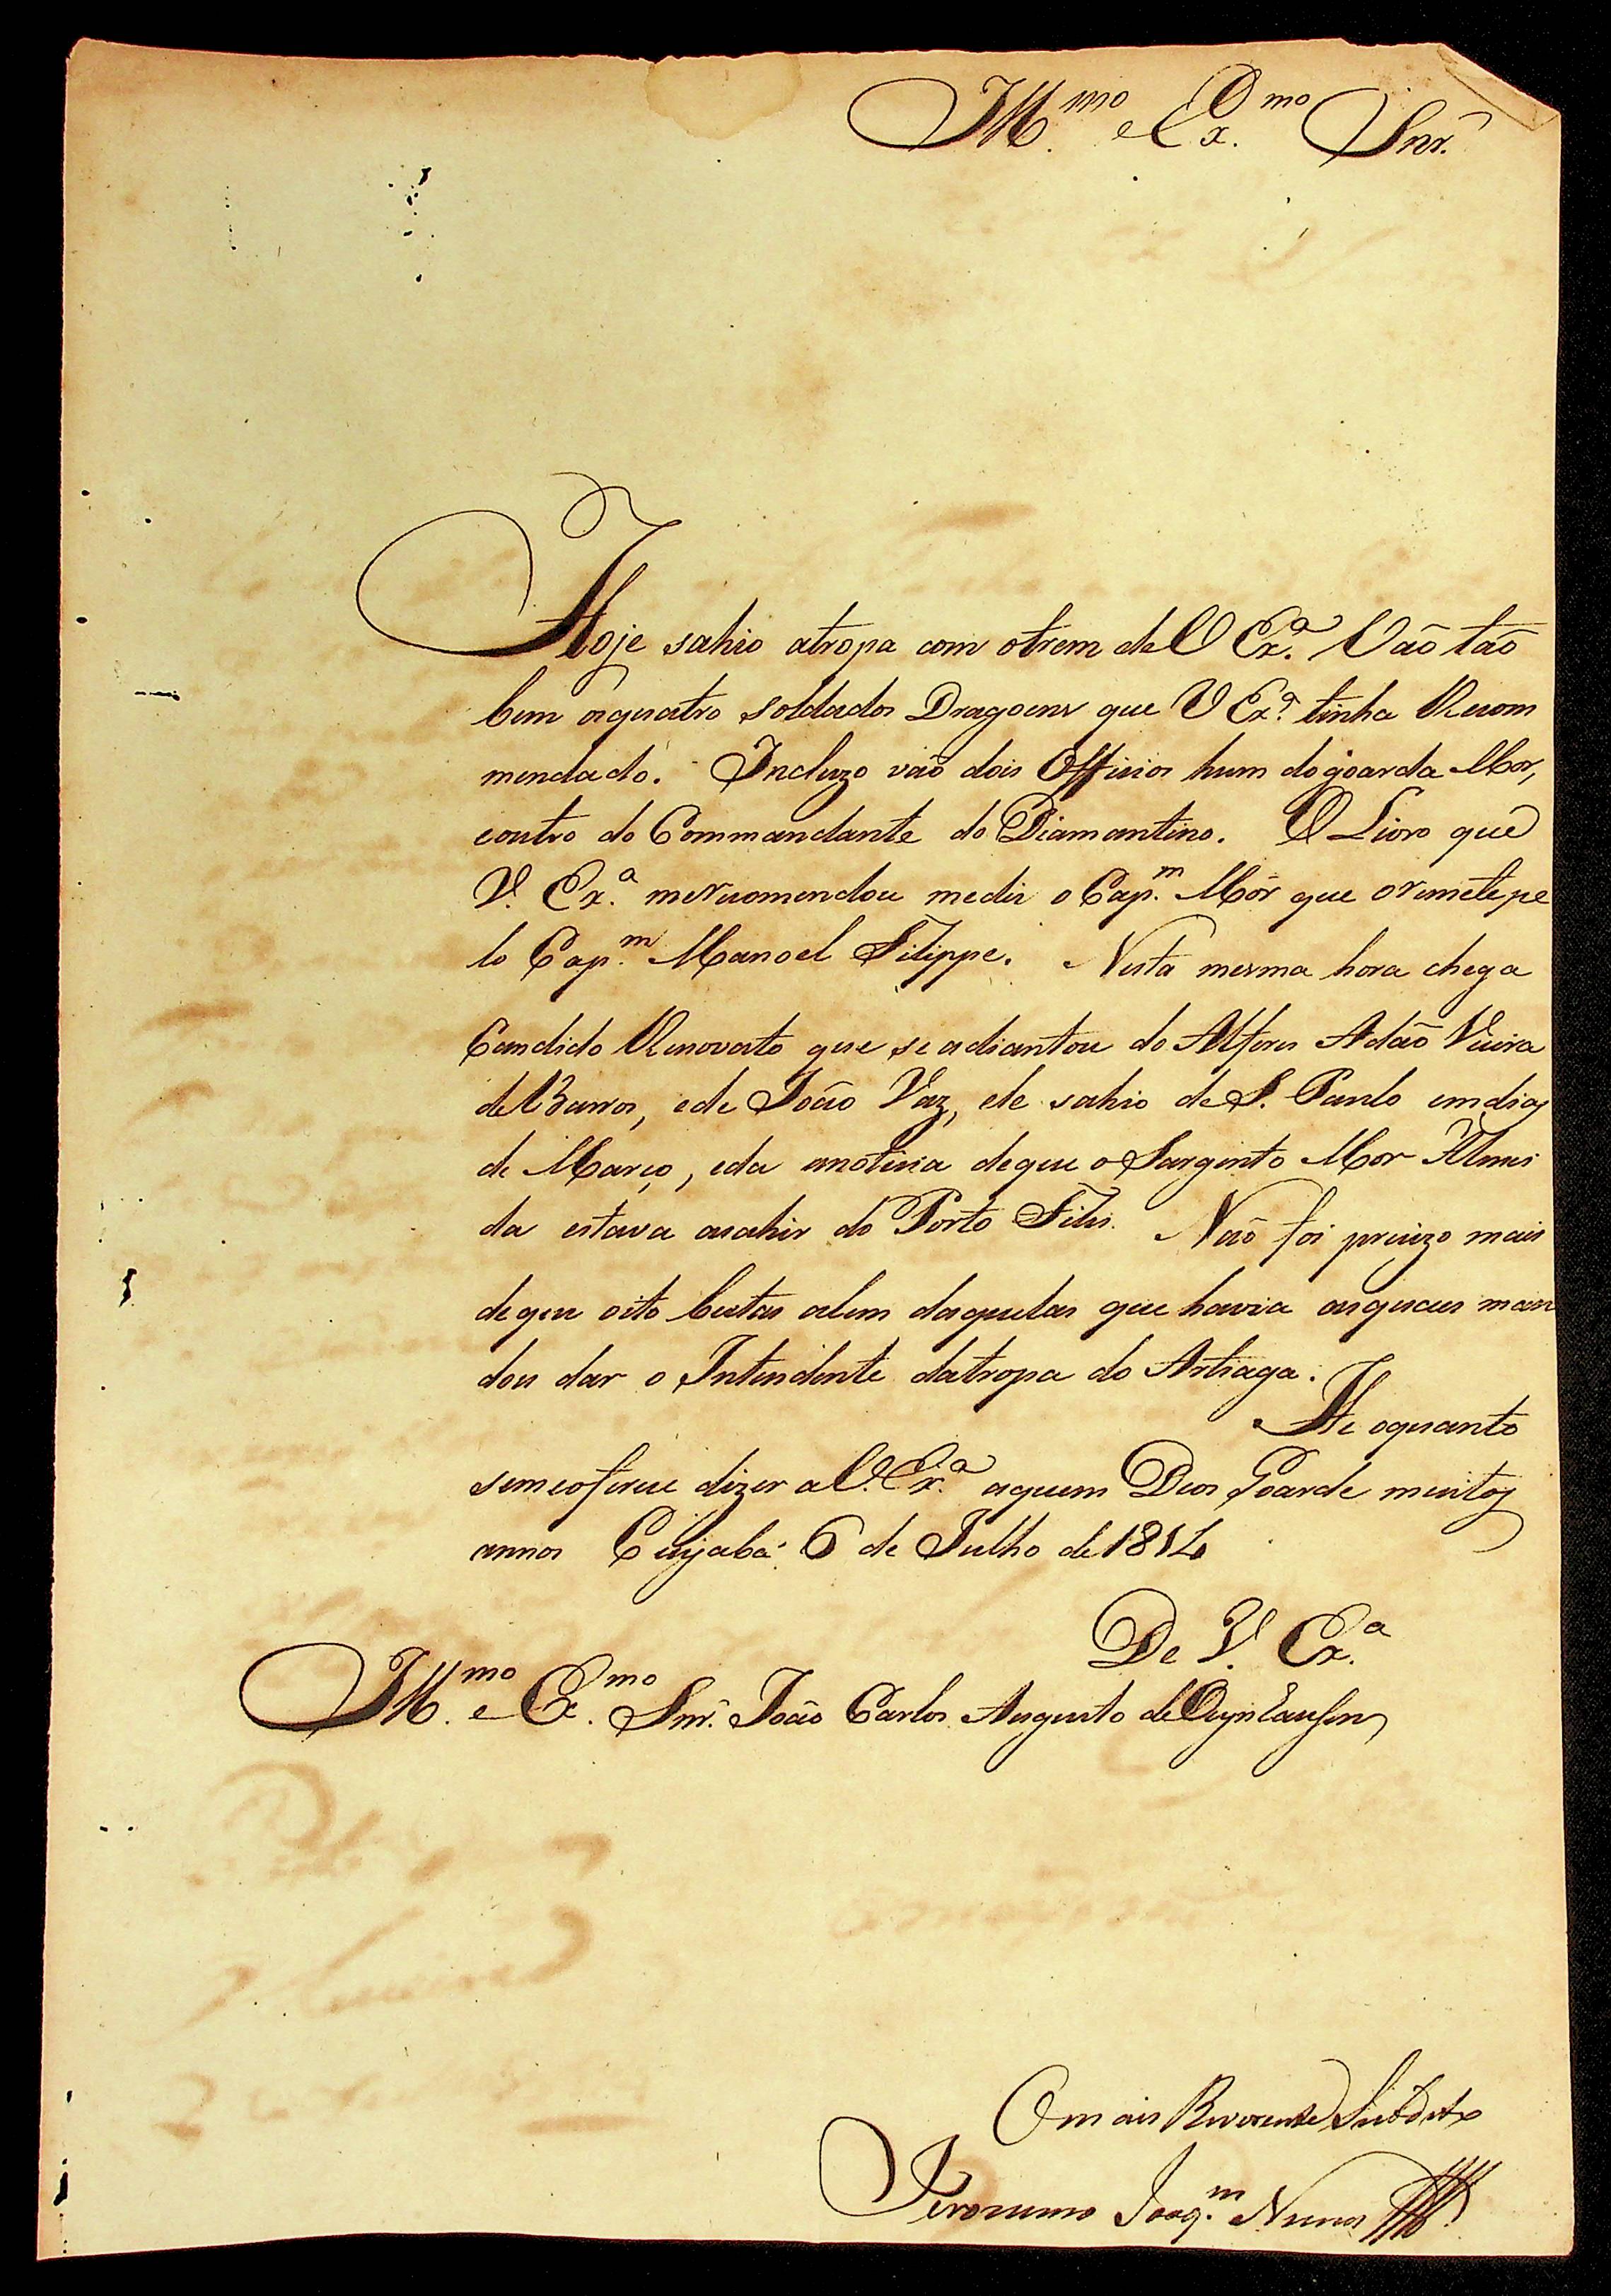 Ill.mo e Ex.mo Snr.
Hoje sahio atropa com otrem de V Ex.a Vão tão
bem osquatro Soldados Dragoens que V Ex.a tinha Recom
mendado. Incluzo vaõ dois Officios hum dogoarda Mor,
eoutro do Commandante do Diamantino. O Livro que
V. Ex.a merecomendou mediz o Cap.m Mór que oremetepe
lo Cap.m Manoel Filippe. Nesta mesma hora chega
Candido Renovato que se adiantou do Alferes Adaõ Vieira
de Barros, ede Joaõ Vaz, ele sahio de S. Paulo emdias
de Março, eda anoticia deque o Sargento Mor Almei
da estava asahir do Porto Félis. Naõ foi precizo mais
deque oito bestas alem daquelas que havia asquaes man
dou dar o Intendente datropa do Artiaga.
He oquanto
semeoferece dizer a V. Ex.a aquem Deos Goarde muitos
annos Cuyabá 6 de Julho de 1814
De V. Ex.a
Ill.mo e Ex.mo Snr. Joaõ Carlos Augusto de Oeynhausen
Omais Reverente Subdito
Jeronimo Joaq.m Nunes